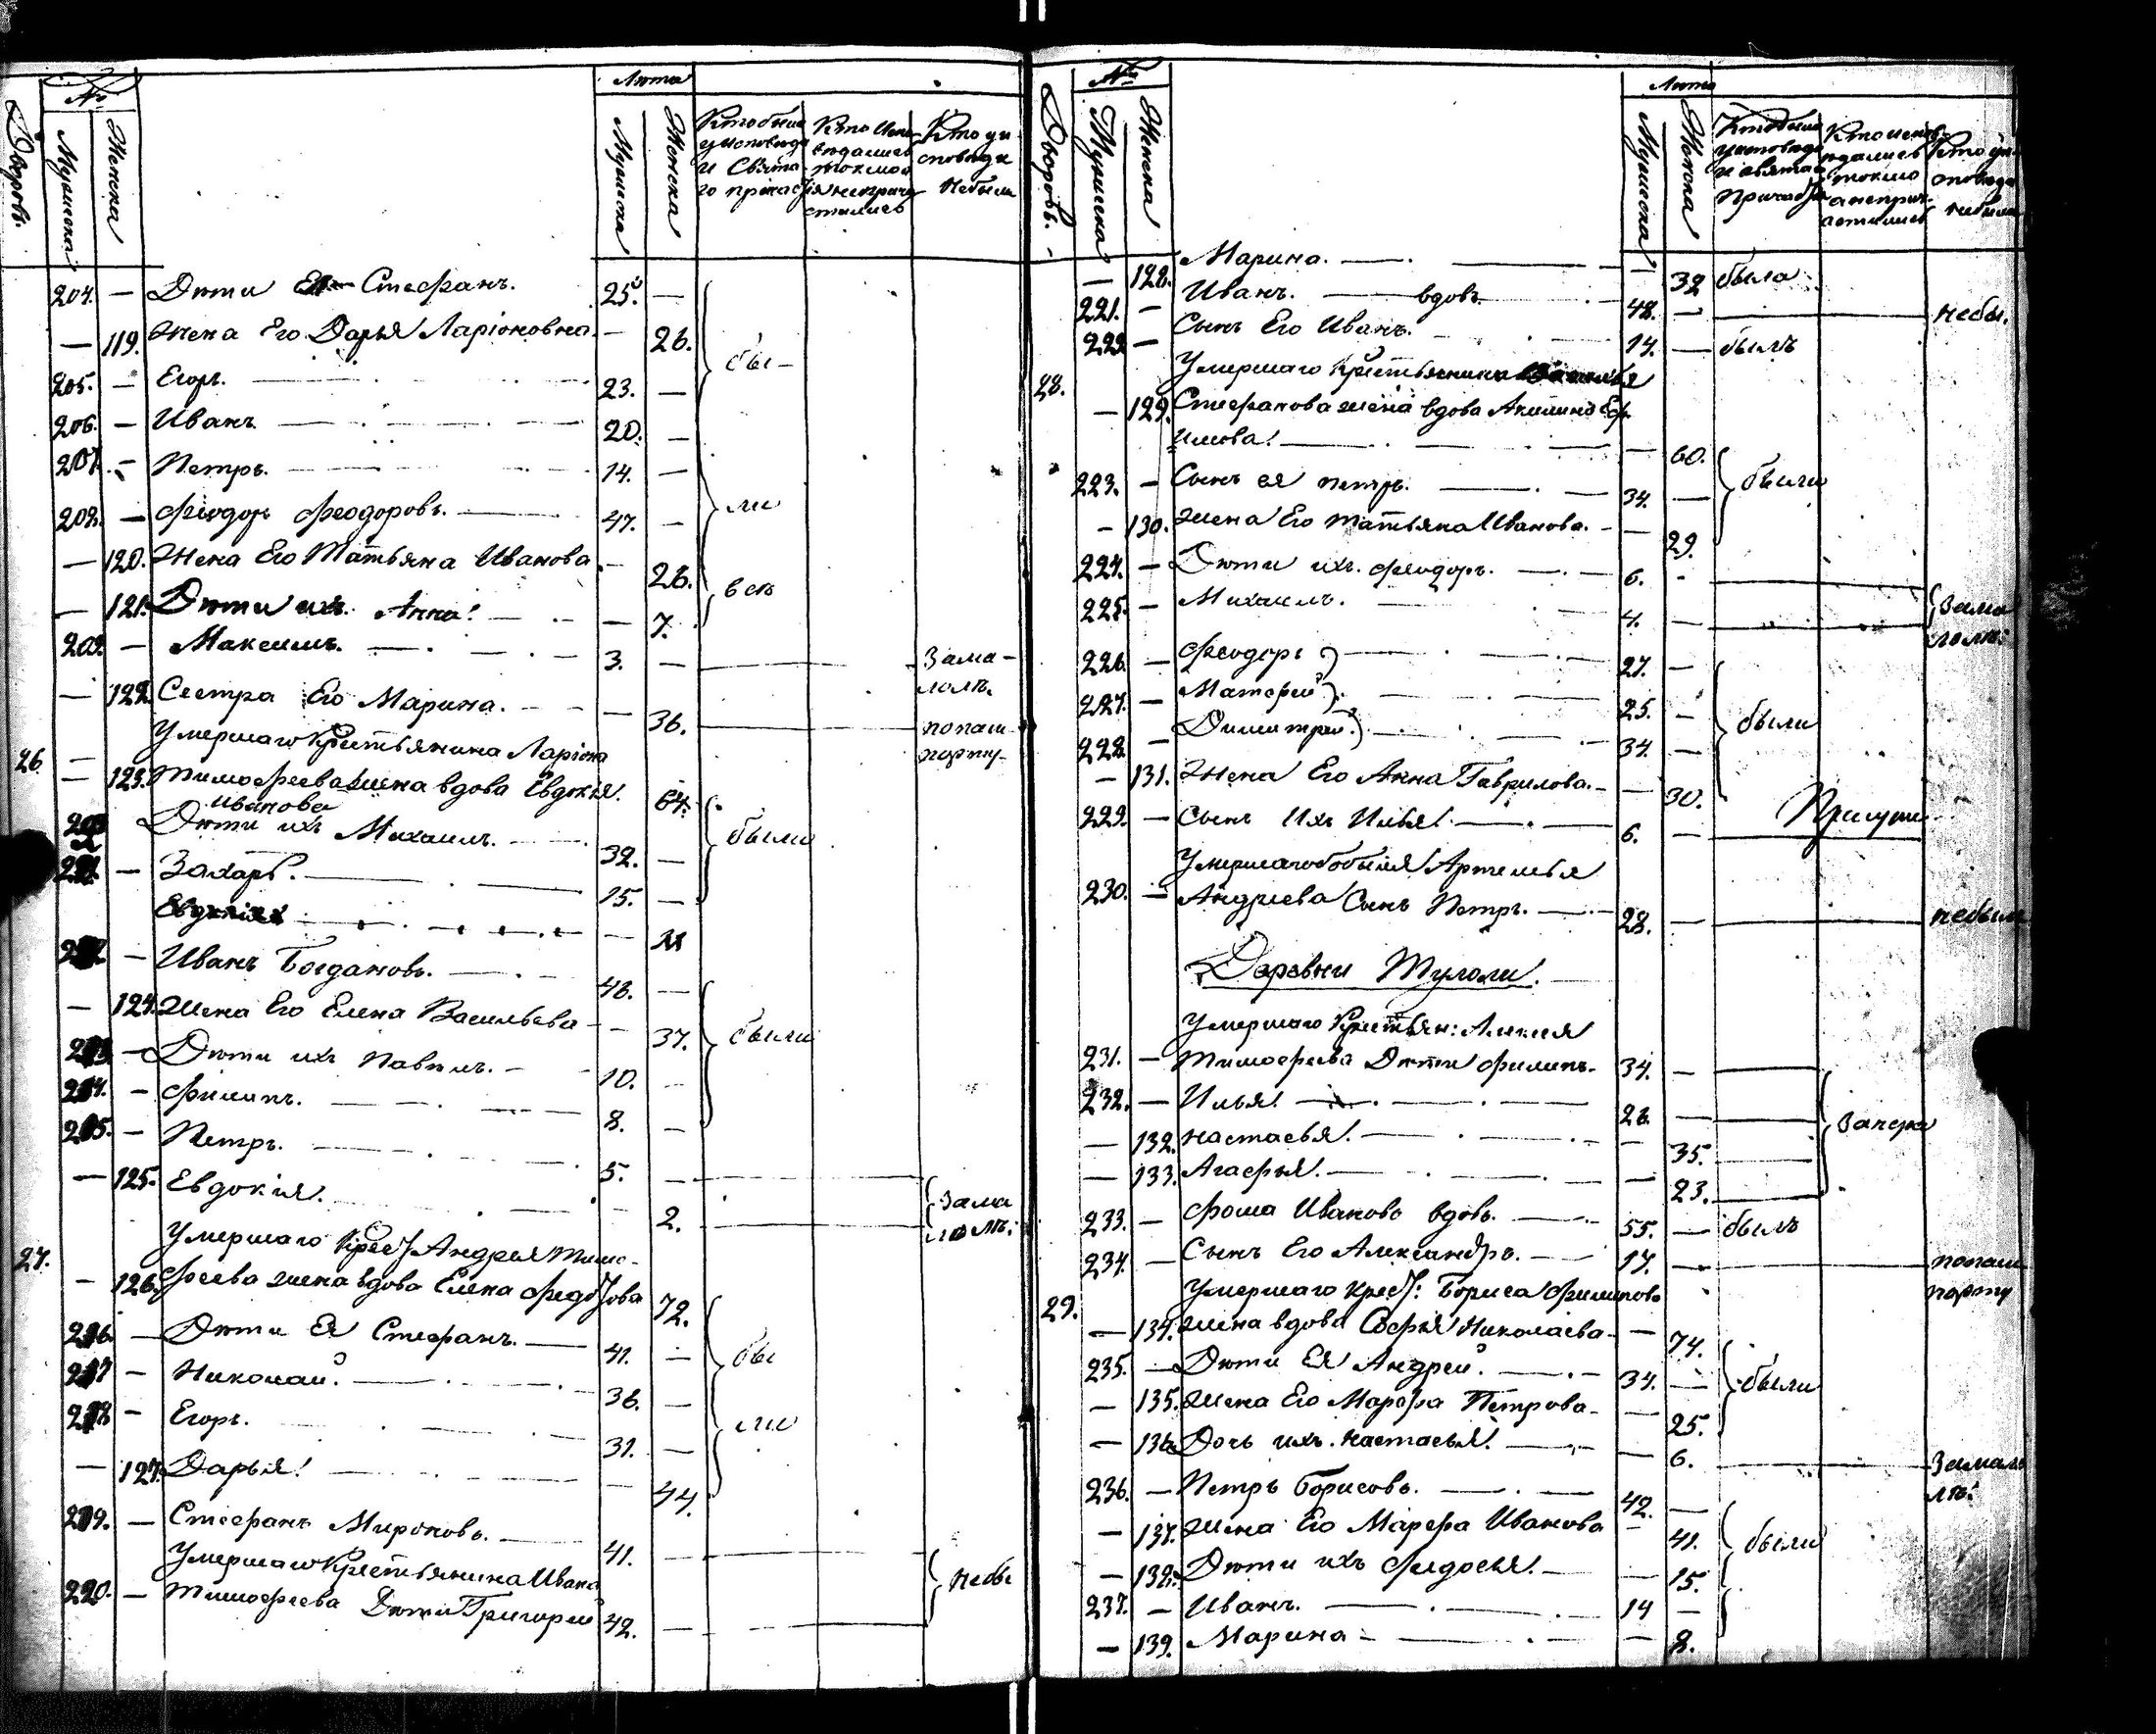 №
Лѣта
Дворовъ.
Мужеска
Женска
Мужеска
Женска
Кто были
у исповѣди
и Свята-
го причас:
Кто Испо-
вѣдались
токмо а
не прича-
стились
Кто у и-
сповѣди
не были
204. — Дѣти Ея Стефанъ. 25. —
— 119. Жена Его Дарья Ларіоновна. — 26.
205. — Егоръ. 23. — бы-
206. — Иванъ 20. —
207. — Петръ. 14. —
208. — Феодоръ Феодоровъ. 47. — ли
— 120. Жена Его Татьяна Иванова — 26.
— 121. Дѣти ихъ Анна. — 7. всѣ
209. — Максимъ. 3. — За ма-
лолѣ.
— 122. Сестра Его Марина. — 36. по паш-
порту
26. Умершаго Крестьянина Ларіона
— 123. Тимофеева жена вдова Евдокія. 64.
Иванова
Дѣти ихъ Михаилъ. 32. — были
— Захаръ. 15. —
Евдокія
— Иванъ Богдановъ. 48. —
— 124. Жена Его Елена Васильева — 37. были
213. — Дѣти ихъ Павилъ. 10. —
214. — Филипъ. 8. —
215. — Петръ. 5. —
— 125. Евдокія. 2. За ма
лолѣ:
27. Умершаго Крест Андрея Тимо-
— 126. феева жена вдова Елена Федотова 72.
216. — Дѣти Ея Стефанъ. 41. — бы
217 — Николай. 36. —
218 — Егоръ. 31. — ли
— 127. Дарья. — 44.
219. — Стефанъ Мироновъ. 41. —
Умершаго Крестьянина Ивана
220. — Тимофеева Дѣти Григорей 42. — небы
№
Лѣта
Дворовъ.
Мужеска
Женска
Мужеска
Женска
Кто были
у исповѣди
и свята
Причас
Кто испо-
вѣдались
токмо
а неприч-
астились
Кто у и-
сповѣди
не были
— 128. Марина. — 32 была
221. — Иванъ. вдовъ 48. — небы.
222 — Сынъ Его Иванъ. 14. — былъ
28. Умершаго Крестьянина
— 129. Стефанова жена вдова Акилина Еф-
имова. — 60.
223. — Сынъ ея Петръ. 34. — были
— 130. Жена Его Татьяна Иванова. — 29.
224. — Дѣти ихъ Феодоръ. 6. —
225. — Михаилъ. 4. — За ма
лолѣ:
226. — Феодоръ 27. —
227. — Матфей 25. — были
228. — Димитрей 34. —
— 131. Жена Его Анна Гаврилова. — 30.
229. — Сынъ Ихъ Илья. 6. —
Умершаго бобыля Артемья
230. — Андреева Сынъ Петръ. 28. — небыл
Деревни Тулоли.
Умершаго Крестьян: Алексея
231. — Тимофеева Дѣти Филипъ. 34. —
232. — Илья. 26. —
— 132. Настасья. — 35.
— 133. Агафья. — 23.
233. — Фома Ивановъ вдовъ. 55. — былъ
234. — Сынъ Его Александръ. 17. — по паш
порту
29. Умершаго Крест: Бориса Филипова
— 134. Жена вдова Софья Николаева — 74.
235. — Дѣти Ея Андрей. 34. — были
— 135. Жена Его Марфа Петрова — 25.
— 136. Дочь ихъ Настасья. — 6. За мало
лѣ:
236. — Петръ Борисовъ. 42. —
— 137. Жена Его Марфа Иванова — 41. были
— 138. Дѣти ихъ Федосья. — 15.
237. — Иванъ. 14 —
— 139. Марина — 8.